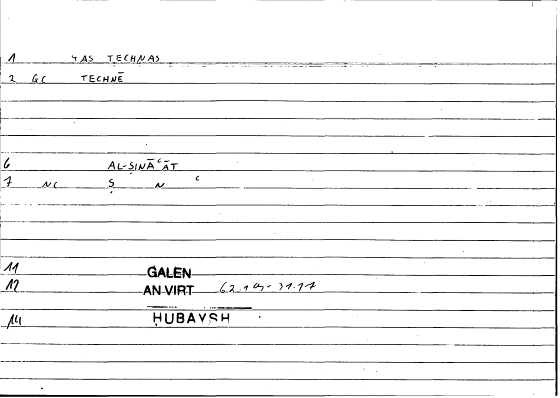 1 TAS TECHNAS
2 GC TECHNĒ
6 AL-ṢINĀʿĀT
7 NC Ṣ N ʿ
11 GALEN
12 AN VIRT
14 ḤUBAYSH